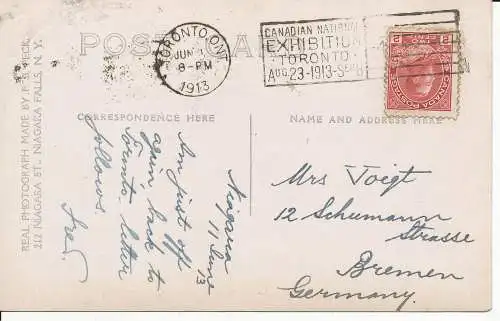 POST CARD
TORONTO, ONT
JUN
8-PM
1913
CANADIAN NATIONAL
EXHIBITION
TORONTO
AUG. 23-1913-SEP. 8
CANADA POSTAGE
2 2
CORRESPONDENCE HERE
NAME AND ADDRESS HERE
REAL PHOTOGRAPH MADE BY
212 NIAGARA ST., NIAGARA FALLS, N. Y.
Niagara
11 June
13
Am just off
again, back to
Toronto. letter
follows.
Mrs Voigt
12 Schumann
Strasse
Bremen
Germany.